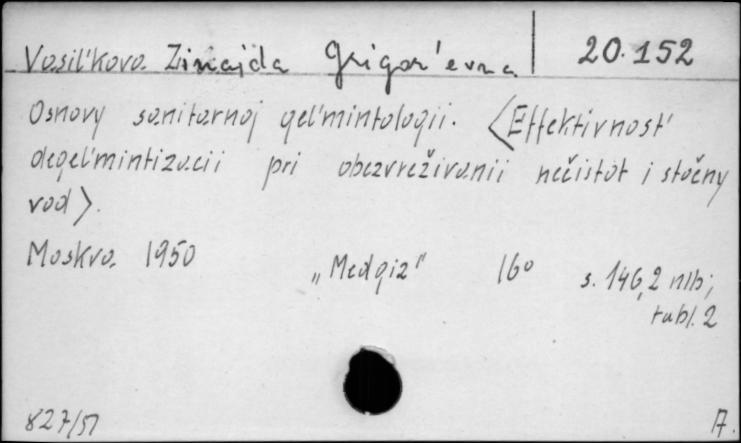 Vasil'kova Zinajda Grigor'evna 20.152
Osnovy sanitarnoj gel'mintologii. <Effektivnost'
degel'mintizacii pri obezvreživanii nečistot i stočny
vod>.
Moskva 1950 „Medgiz" 16° s. 146, 2 nlb;
tabl. 2
827/51 A.